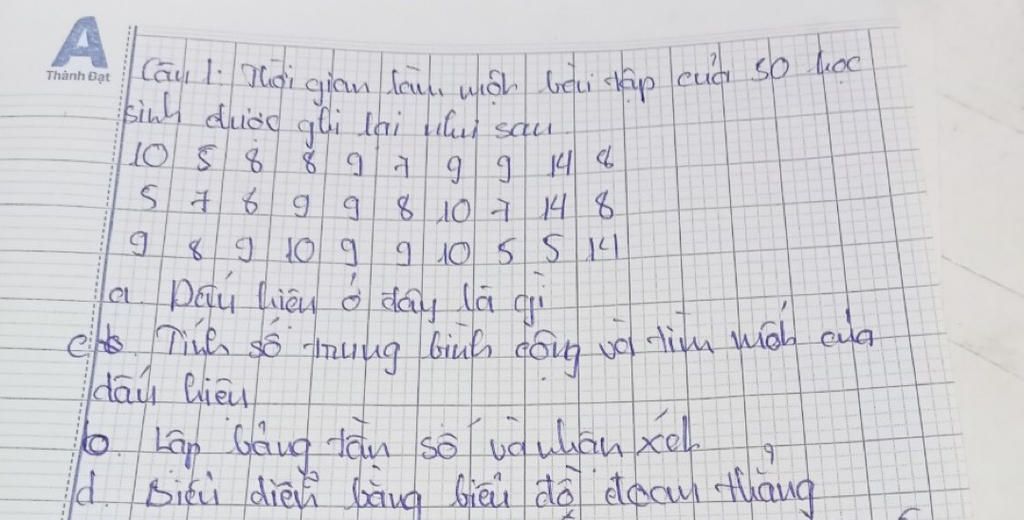 A
Thành Đạt
Câu 1: Thời gian làm một bài tập của 30 học
sinh được ghi lại như sau
10 5 8 8 9 7 9 9 14 8
5 7 8 9 9 8 10 7 14 8
9 8 9 10 9 9 10 5 5 14
a. Dấu hiệu ở đây là gì
c. Tính số trung bình cộng và tìm mốt của
dấu hiệu
b. Lập bảng tần số và nhận xét
d. Biểu diễn bằng biểu đồ đoạn thẳng